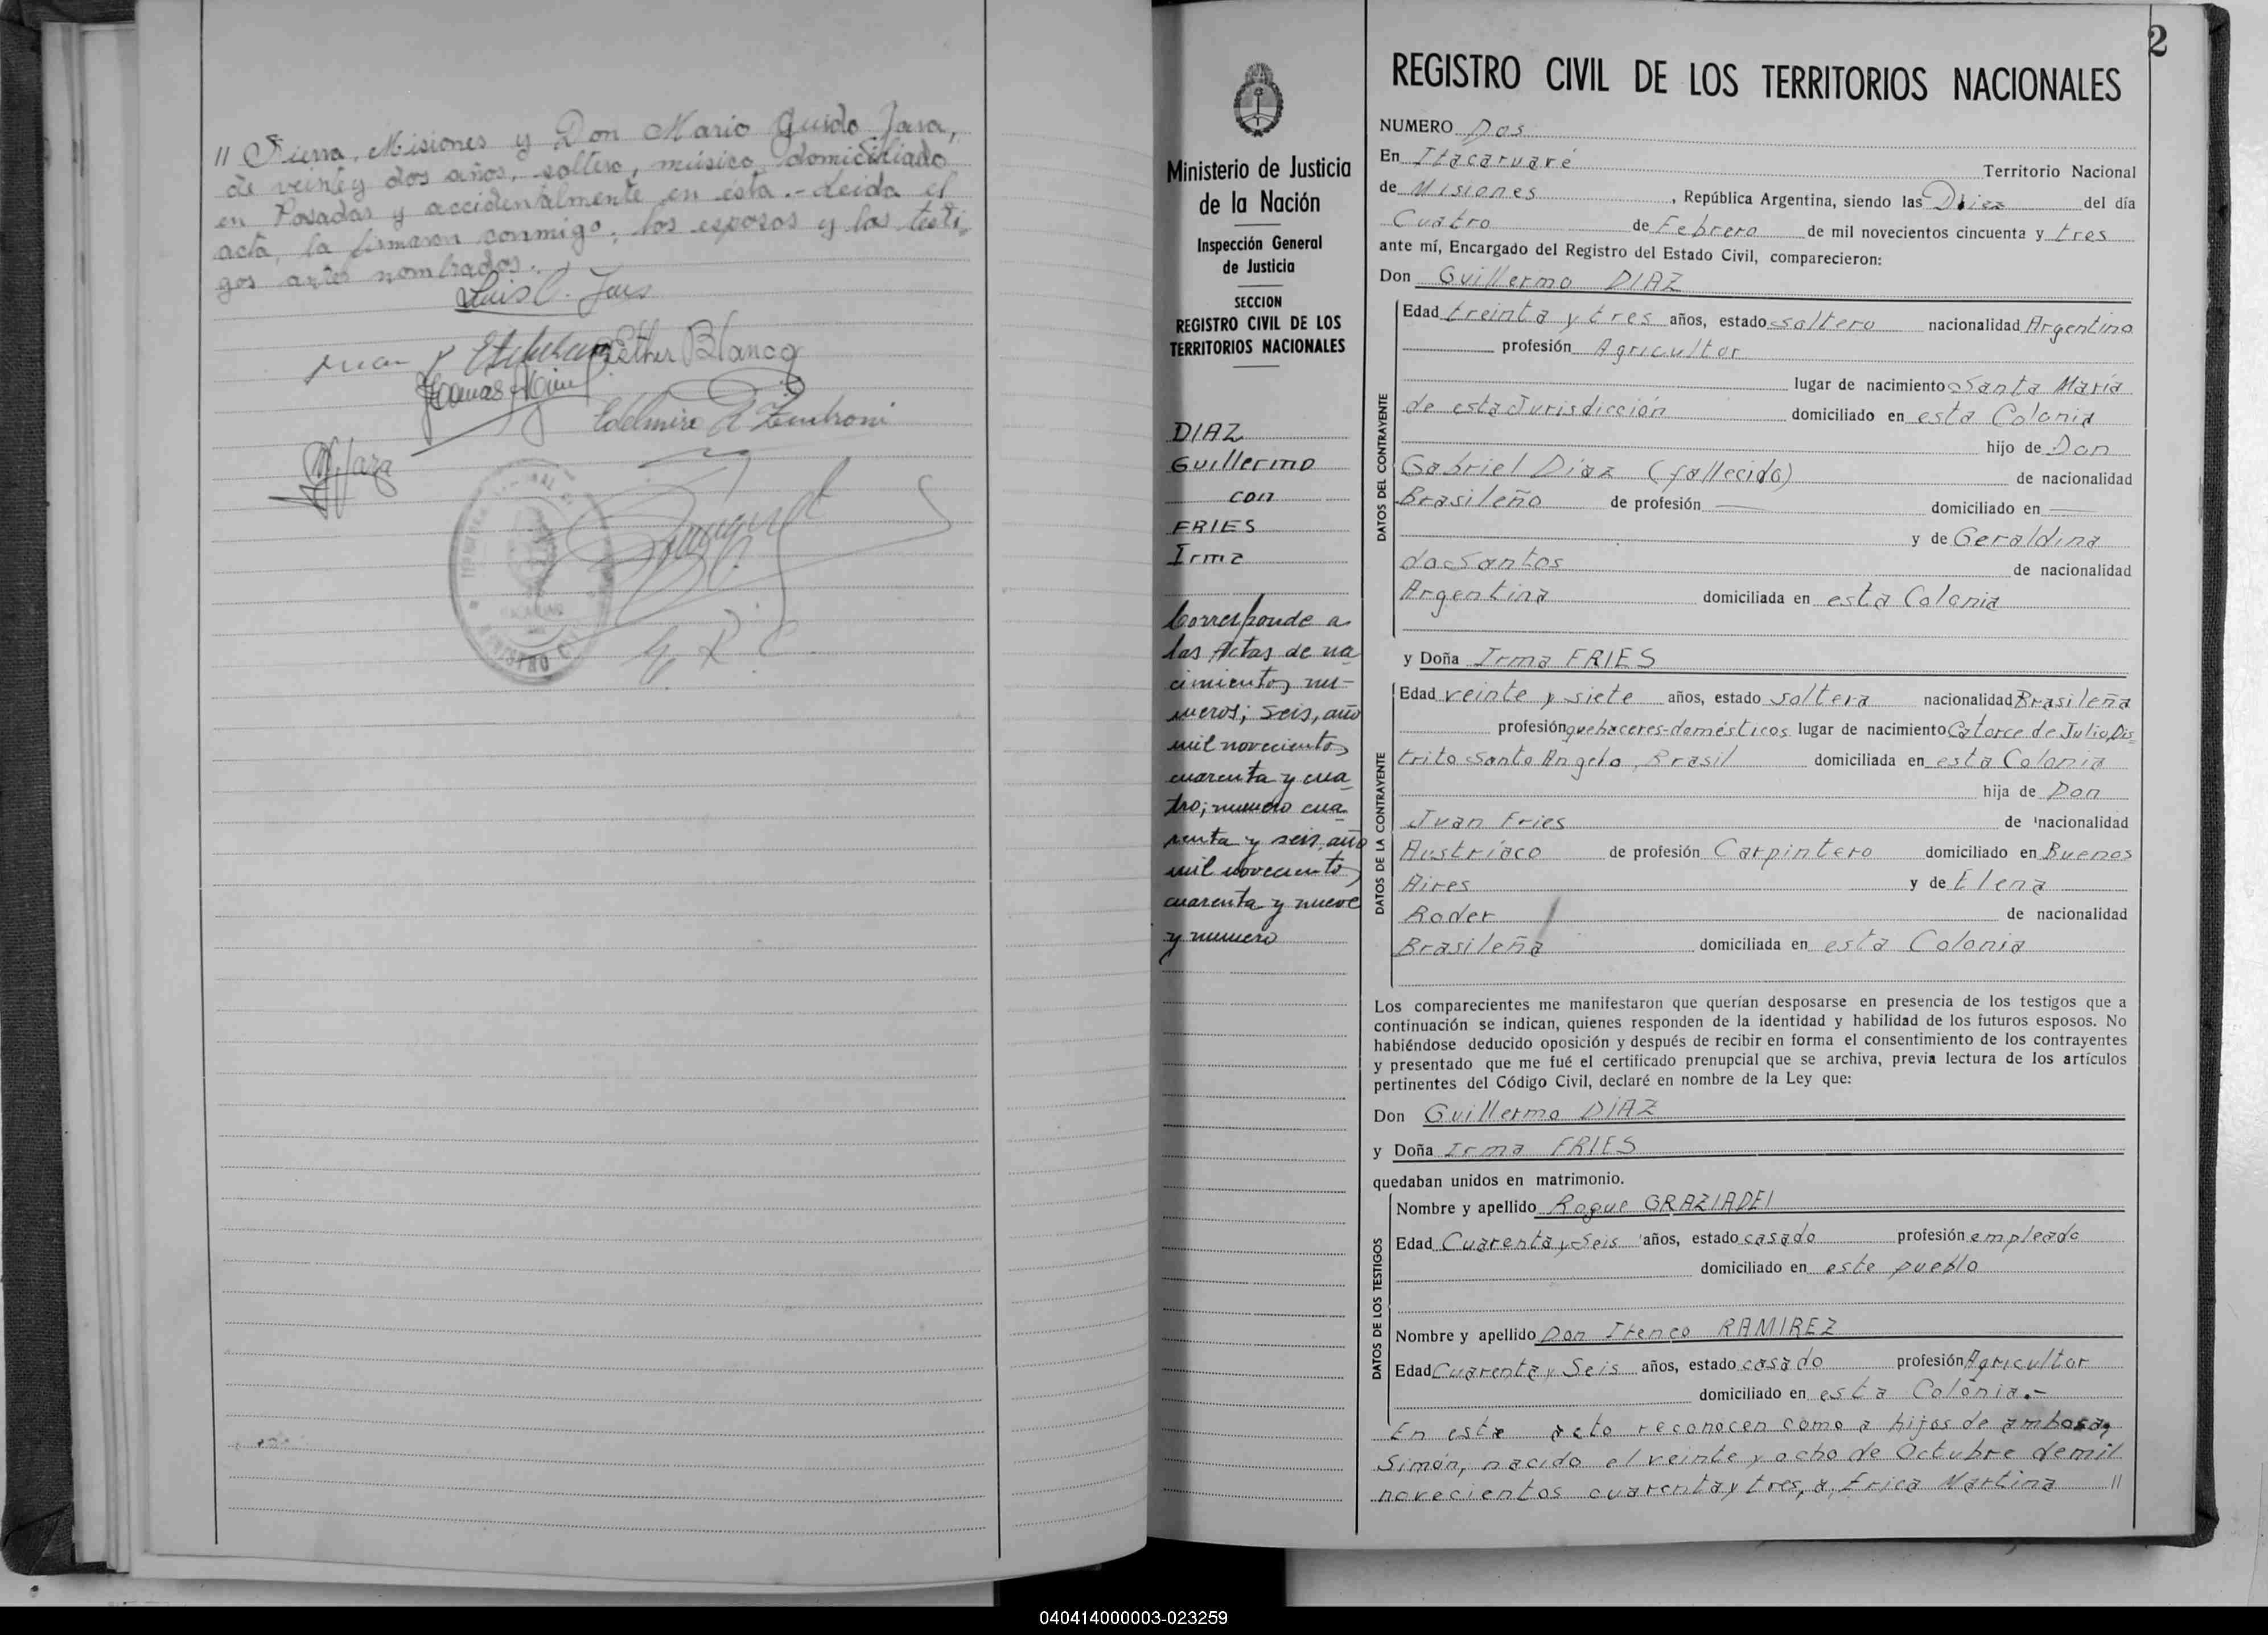 // Sierra, Misiones y Don Mario Guido Jara,
de veinte y dos años, soltero, músico domiciliado
en Posadas y accidentalmente en esta.- Leida el
acta, la firmaron conmigo, los esposos y los testi-
gos antes nombrados.
Esther Blanco
2
REGISTRO CIVIL DE LOS TERRITORIOS NACIONALES
Ministerio de Justicia
de la Nación
Inspección General
de Justicia
SECCION
REGISTRO CIVIL DE LOS
TERRITORIOS NACIONALES
DIAZ
Guillermo
con
FRIES
Irma
Corresponde a
las Actas de na-
cimientos nú-
meros; seis, año
mil novecientos
cuarenta y cua-
tro; numero cua-
renta y seis, año
mil novecientos
cuarenta y nueve
y numero
NUMERO Dos
En Itacaruaré Territorio Nacional
de Misiones, República Argentina, siendo las Diez del día
Cuatro de Febrero de mil novecientos cincuenta y tres
ante mí, Encargado del Registro del Estado Civil, comparecieron:
Don Guillermo DIAZ
DATOS DEL CONTRAYENTE
Edad treinta y tres años, estado soltero nacionalidad Argentino
profesión Agricultor
lugar de nacimiento Santa María
de esta Jurisdicción domiciliado en esta Colonia
hijo de Don
Gabriel Díaz (fallecido) de nacionalidad
Brasileño de profesión — domiciliado en —
y de Geraldina
do Santos de nacionalidad
Argentina domiciliada en esta Colonia
y Doña Irma FRIES
DATOS DE LA CONTRAYENTE
Edad veinte y siete años, estado soltera nacionalidad Brasileña
profesión quehaceres-domésticos lugar de nacimiento Catorce de Julio, Dis-
trito Santo Angelo, Brasil domiciliada en esta Colonia
hija de Don
Juan Fries de nacionalidad
Austríaco de profesión Carpintero domiciliado en Buenos
Aires y de Elena
Roder de nacionalidad
Brasileña domiciliada en esta Colonia
Los comparecientes me manifestaron que querían desposarse en presencia de los testigos que a
continuación se indican, quienes responden de la identidad y habilidad de los futuros esposos. No
habiéndose deducido oposición y después de recibir en forma el consentimiento de los contrayentes
y presentado que me fué el certificado prenupcial que se archiva, previa lectura de los artículos
pertinentes del Código Civil, declaré en nombre de la Ley que:
Don Guillermo DIAZ
y Doña Irma FRIES
quedaban unidos en matrimonio.
DATOS DE LOS TESTIGOS
Nombre y apellido Roque GRAZIADEI
Edad Cuarenta y Seis años, estado casado profesión empleado
domiciliado en este pueblo
Nombre y apellido Don Ireneo RAMIREZ
Edad Cuarenta y Seis años, estado casado profesión Agricultor
domiciliado en esta Colonia.-
En este acto reconocen como a hijos de ambos a,
Simón, nacido el veinte y ocho de Octubre de mil
novecientos cuarenta y tres, a, Erica Martina //
040414000003-023259